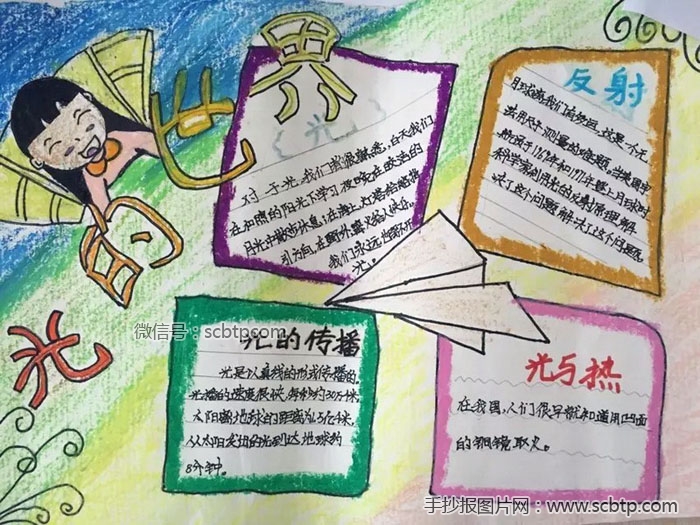 光的世界
光
对于光,我们都很熟悉,白天我们
在和晴的阳光下学习,夜晚在皎洁的
月光中散步休息,在海上灯塔给船指
引方向,在野外篝火给人
我们永远也离不开
光。
反射
去用尺子测量的难题。当美国宇
航员于1969年和1971年登上月球时
科学家利用光的反射原理解
决了这个问题 解决了这个问题
光的传播
光是以直线的形式传播的。
光播的速度很快,每秒约30万千米。
太阳离地球的距离为1.5亿千米,
从太阳发出的光到达地球约
8分钟。
光与热
在我国,人们很早就知道用凹面
的铜镜取火。
微信号:scbtpcom
手抄报图片网·www.scbtp.com